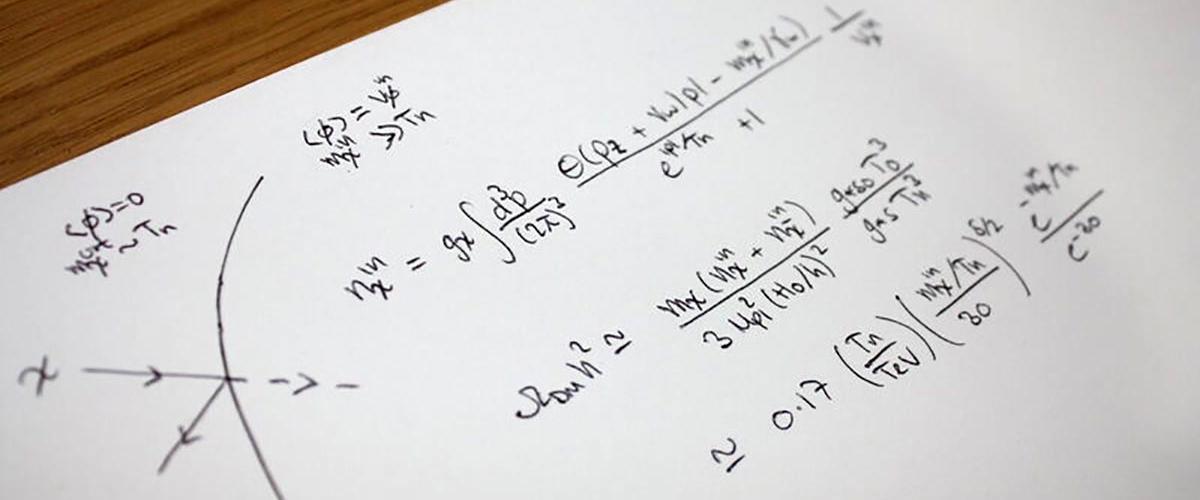 ⟨φ⟩ = 0
m_χ^out ~ T_n
⟨φ⟩ = v_φ^in
m_χ^in ≫ T_n
χ
n_χ^in = g_χ ∫ d³p/(2π)³ Θ(p_z + v_w|p| - m_χ^in/T_n)/(e^{|p|/T_n} + 1) 1/v_χ^in
Ω_DM h² ≃ m_χ(n_χ^in + n_χ̄^in)/(3 M_pl² (H_0/h)²) g_{*s0} T_0³/(g_{*s} T_n³)
≃ 0.17 (T_n/TeV) ((m_χ^in/T_n)/30)^{5/2} e^{-m_χ^in/T_n}/e^{-30}